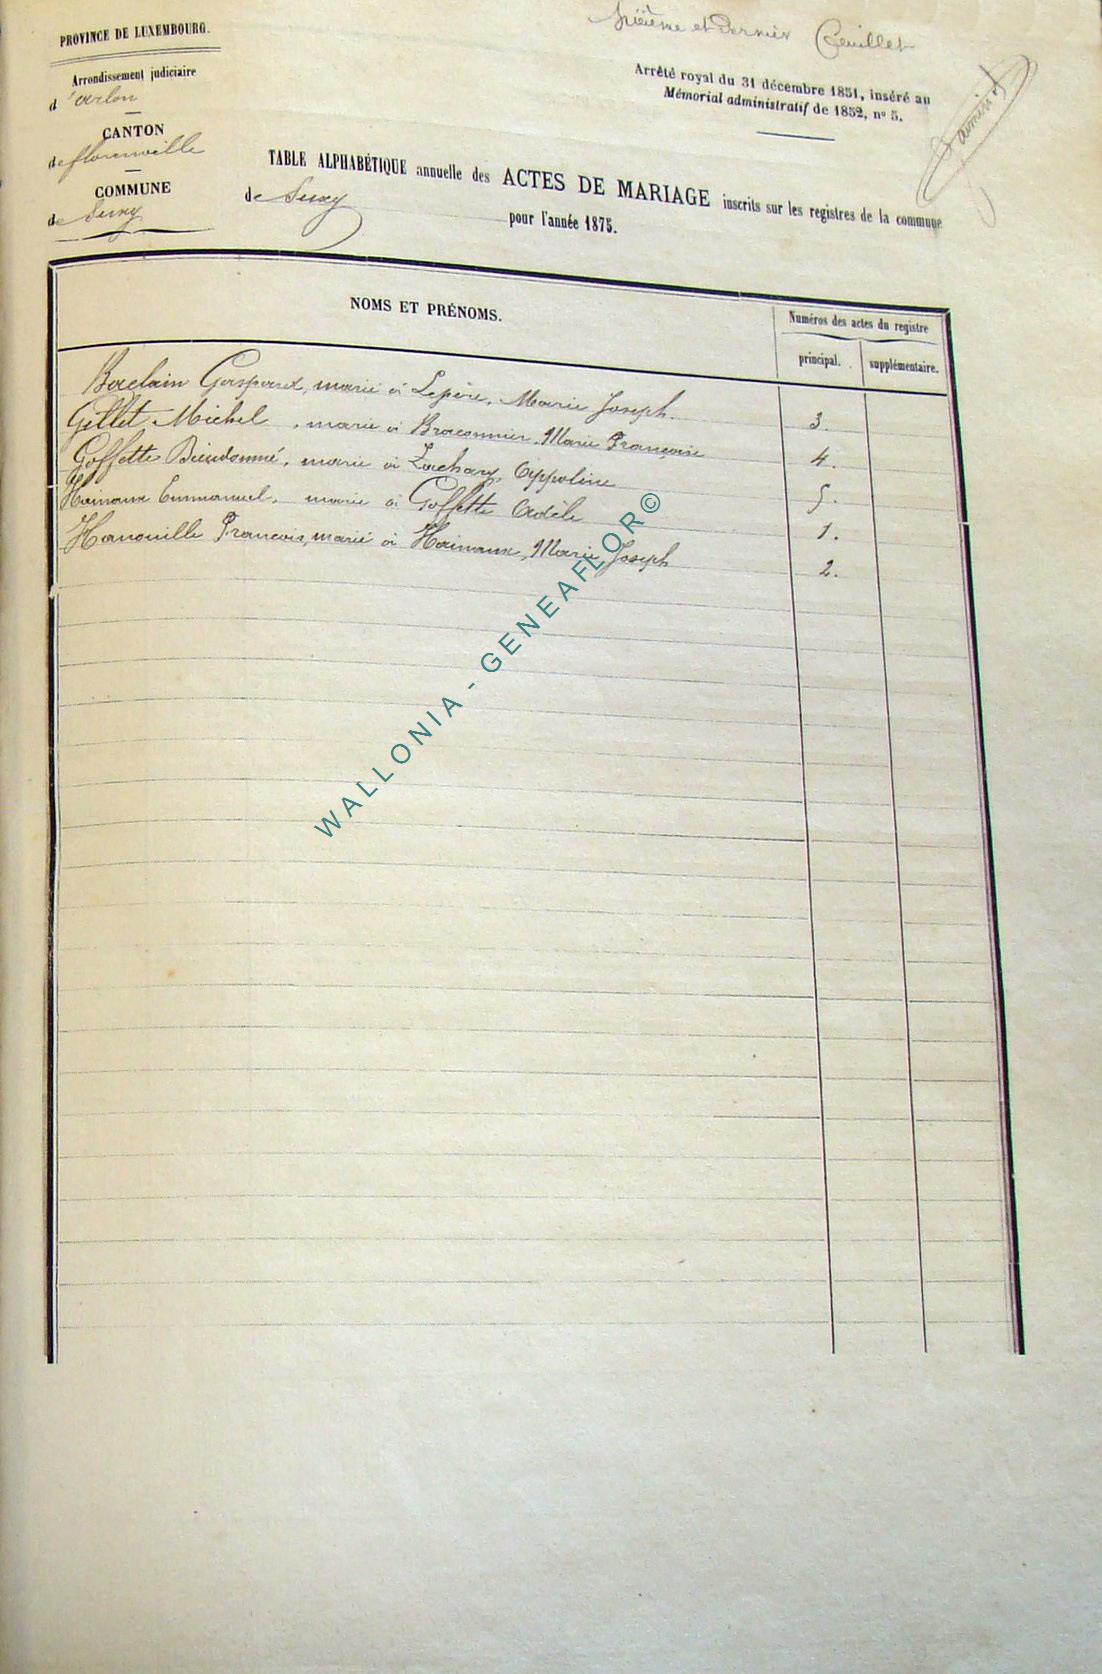 PROVINCE DE LUXEMBOURG.
Arrondissement judiciaire
d'arlon
CANTON
de florenville
COMMUNE
de Suxy
et dernier feuillet
Arrêté royal du 31 décembre 1851, inséré au
Mémorial administratif de 1852, n° 5.
TABLE ALPHABÉTIQUE annuelle des ACTES DE MARIAGE inscrits sur les registres de la commune
de Suxy pour l'année 1875.
NOMS ET PRÉNOMS.
Numéros des actes du registre
principal. supplémentaire.
Gaspard, marié à Lepère, Marie Joseph. 3.
Gillet Michel, marié à Braconnier, Marie Françoise 4.
Goffette Dieudonné, marié à Zachary, Appoline 5.
Hainaux Emmanuel, marié à Goffette Adèle 1.
Hanouille François, marié à Hainaux, Marie Joseph 2.
WALLONIA - GENEAFLOR©